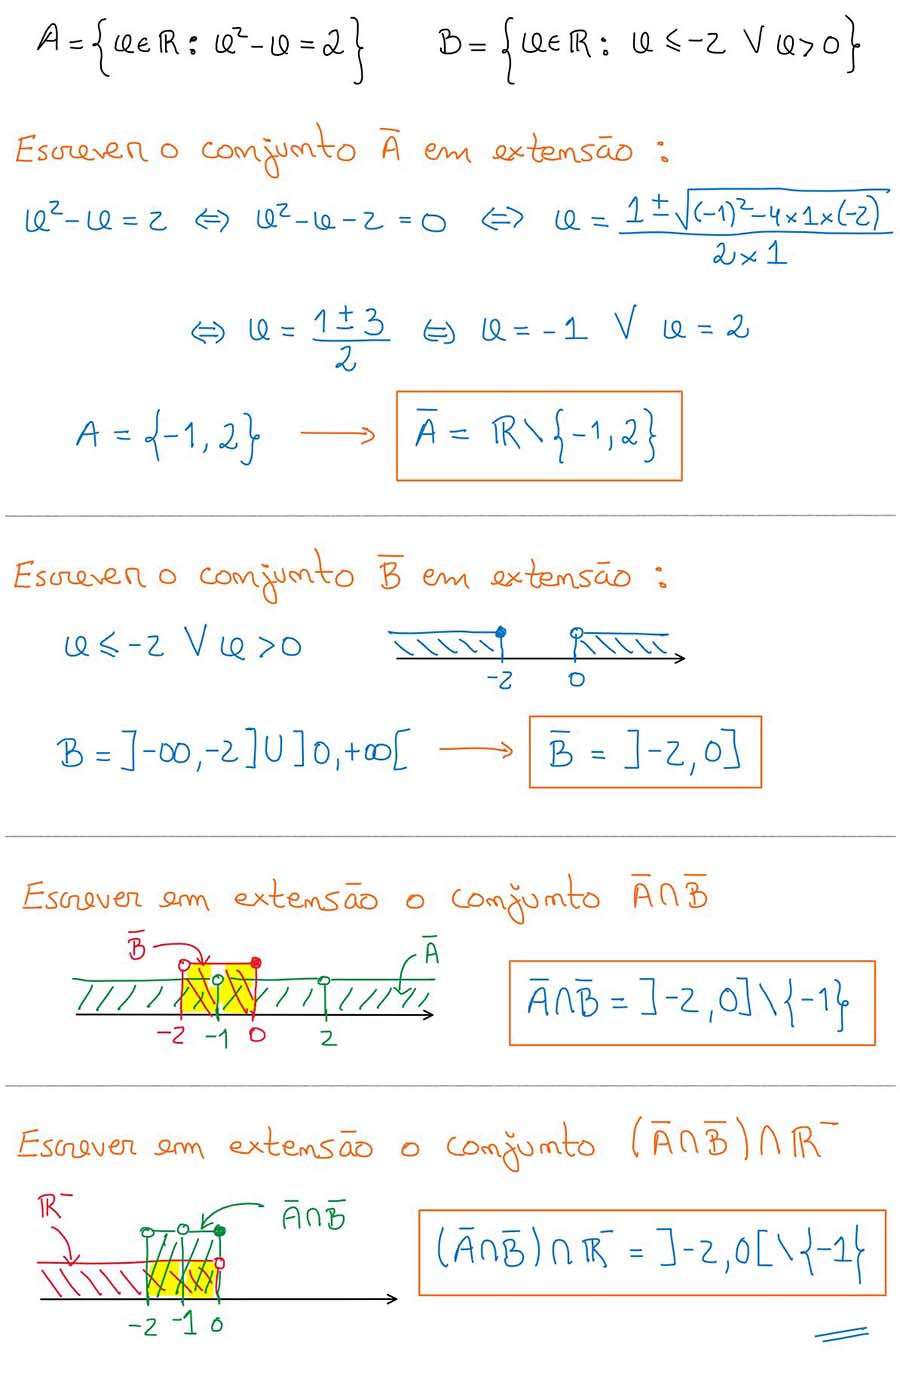 A = {x∈ℝ: x²-x = 2} B = {x∈ℝ: x ≤ -2 ∨ x > 0}
Escrever o conjunto A̅ em extensão :
x²-x = 2 ⇔ x²-x-2 = 0 ⇔ x = (1 ± √((-1)²-4×1×(-2))) / (2×1)
⇔ x = (1±3)/2 ⇔ x = -1 ∨ x = 2
A = {-1, 2} → A̅ = ℝ\{-1, 2}
Escrever o conjunto B̅ em extensão :
x ≤ -2 ∨ x > 0
-2 0
B = ]-∞, -2] ∪ ]0, +∞[ → B̅ = ]-2, 0]
Escrever em extensão o conjunto A̅∩B̅
B̅ A̅
-2 -1 0 2
A̅∩B̅ = ]-2, 0]\{-1}
Escrever em extensão o conjunto (A̅∩B̅)∩ℝ⁻
ℝ⁻ A̅∩B̅
-2 -1 0
(A̅∩B̅)∩ℝ⁻ = ]-2, 0[\{-1}